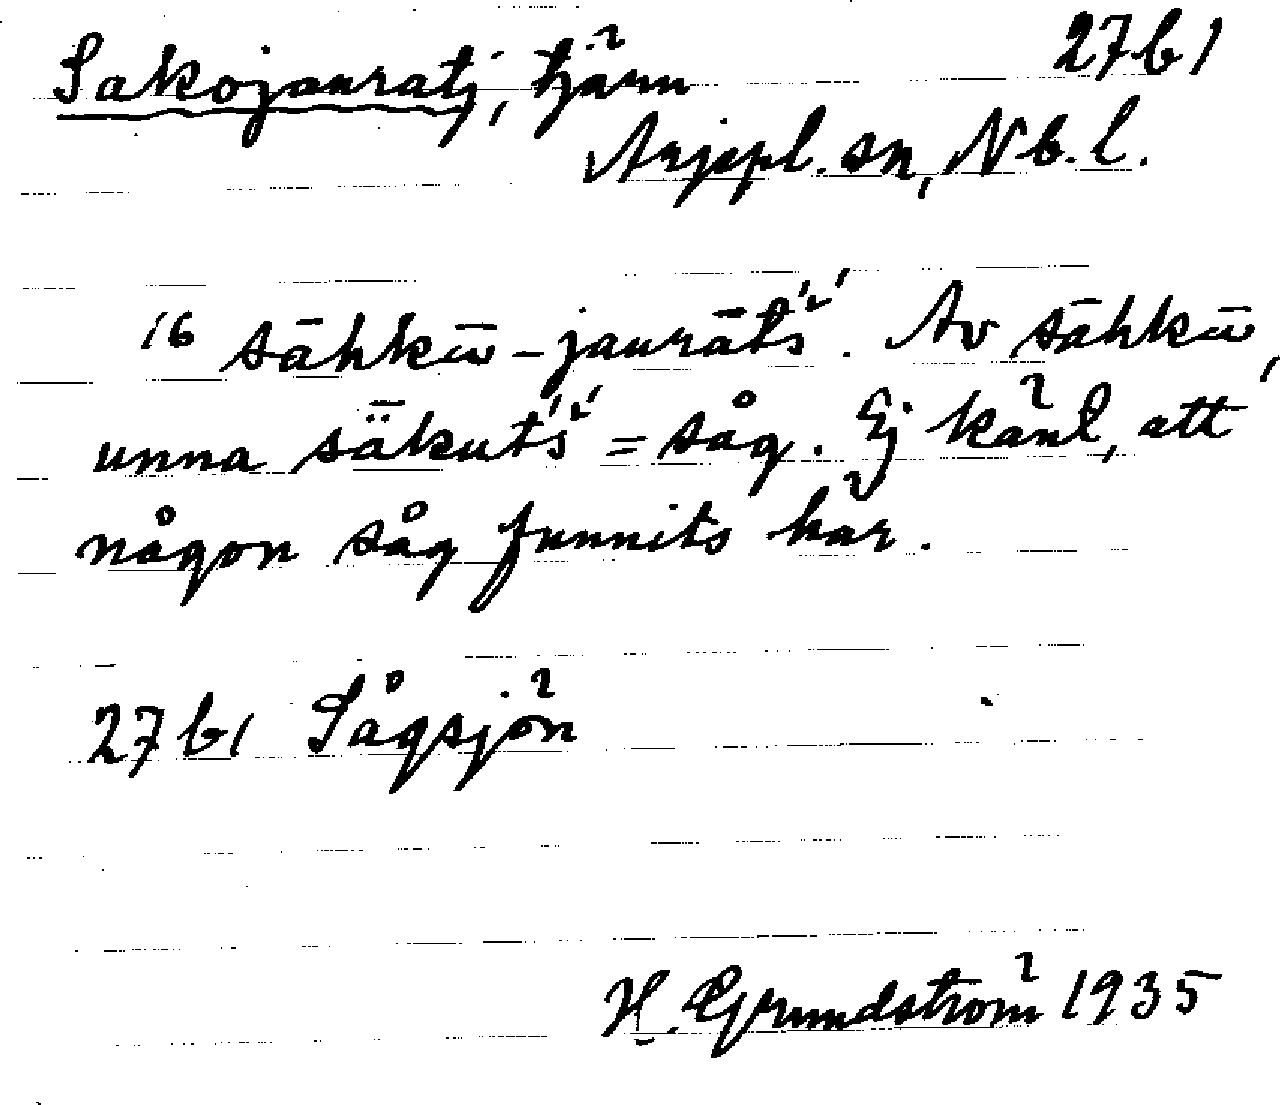 Sakojauratj, tjärn 27 b 1
Arjepl. sn, Nb. l.
16 sāhkū-jaurāt́ś. Av sāhkū,
unna säkut́ś = såg. Ej känt, att
någon såg funnits här.
27 b 1 Sågsjön
H. Grundström 1935